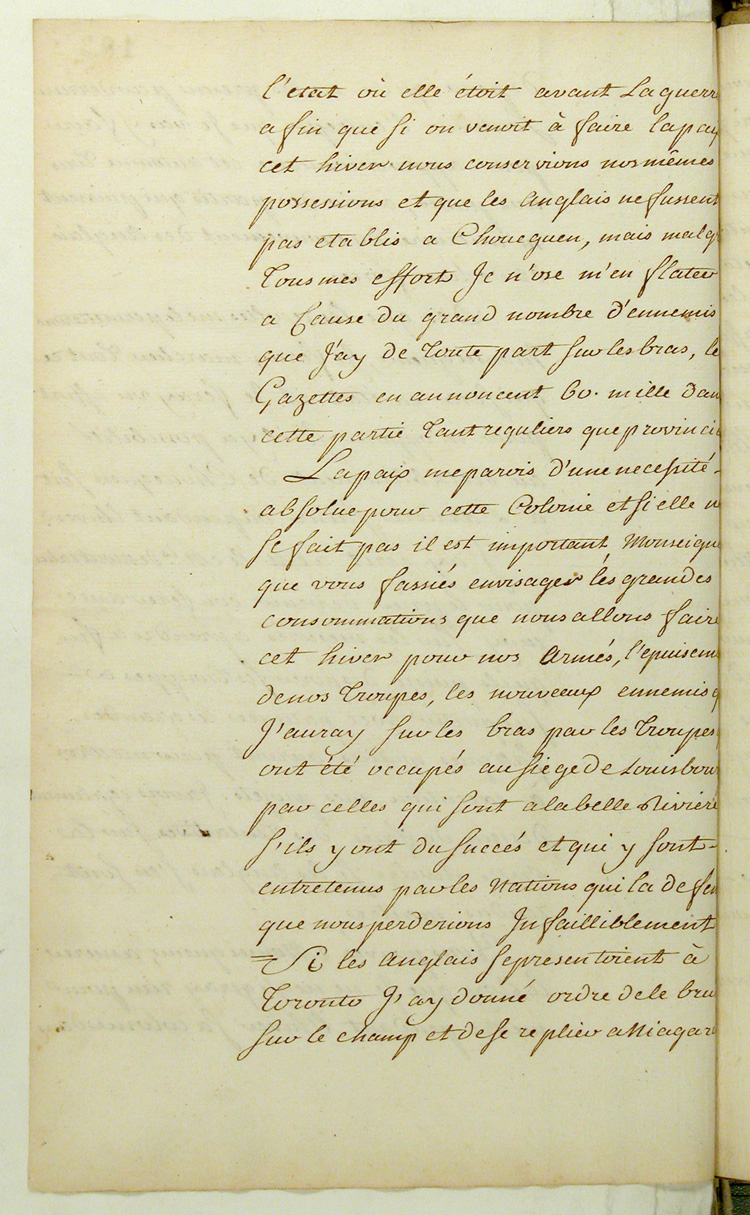 l'etat où elle étoit avant La guerr
afin que si on venoit à faire lapaix
cet hiver nous conservions nos mêmes
possessions et que les Anglais ne fussent
pas etablis a Choueguen, mais malg
Tous mes effort Je n'ose m'en flater
a Cause du grand nombre d'ennemis
que J'ay de Toute part sur les bras, le
Gazettes en annoncent 60. mille dan
cette partie Tant reguliers que provincia
La paix me parois d'une necessité
absolue pour cette Colonie et si elle n
se fait pas il est important Monseigne
que vous fassiés envisager les grandes
consommations que nous allons faire
cet hiver pour nos Armés, l'epuisem
de nos Troupes, les nouveaux ennemis q
J'auray sur les bras par les Troupes
ont été occupés au siege de Louisbou
par celles qui sont a la belle Riviere
s'ils y ont du succés et qui y sont
entretenus par les Nations qui la defen
que nous perderions Infailliblement
= Si les Anglais se presentoient à
Toronto J'ay donné ordre de le bru
sur le champ et de se replier a Niagara